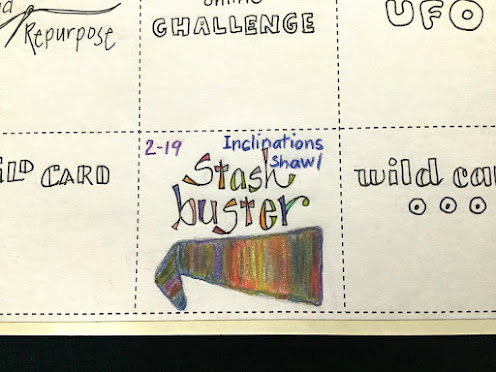 Repurpose
online
CHALLENGE
UFO
WILD CARD
2-19
Inclinations
Shawl
Stash
buster
wild car